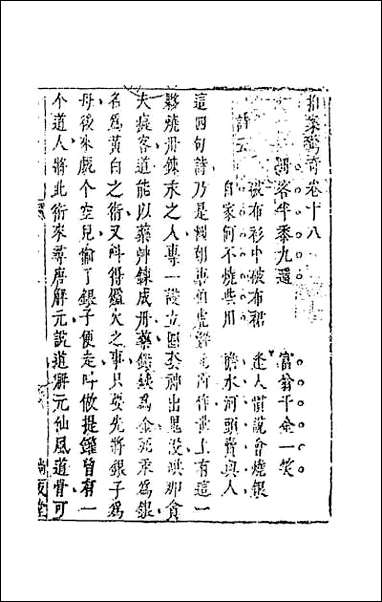 拍案驚奇卷十八
客半黍九還 富翁千金一笑
詩云
破布衫巾破布裙 逢人慣說會燒銀
自家何不燒些用 擔水河頭賣與人
這四句詩乃是國朝唐伯虎解元所作世上有這一
夥燒丹鍊汞之人專一設立圈套神出鬼沒哄那貪
夫癡客道能以藥草鍊成丹藥鉛鐵為金死汞為銀
名為黃白之術又叫得爐火之事只要先將銀子為
母後來覷個空兒偷了銀子便走叫做提罐曾有一
个道人將此術來尋唐解元說道解元仙風道骨可
尚友堂